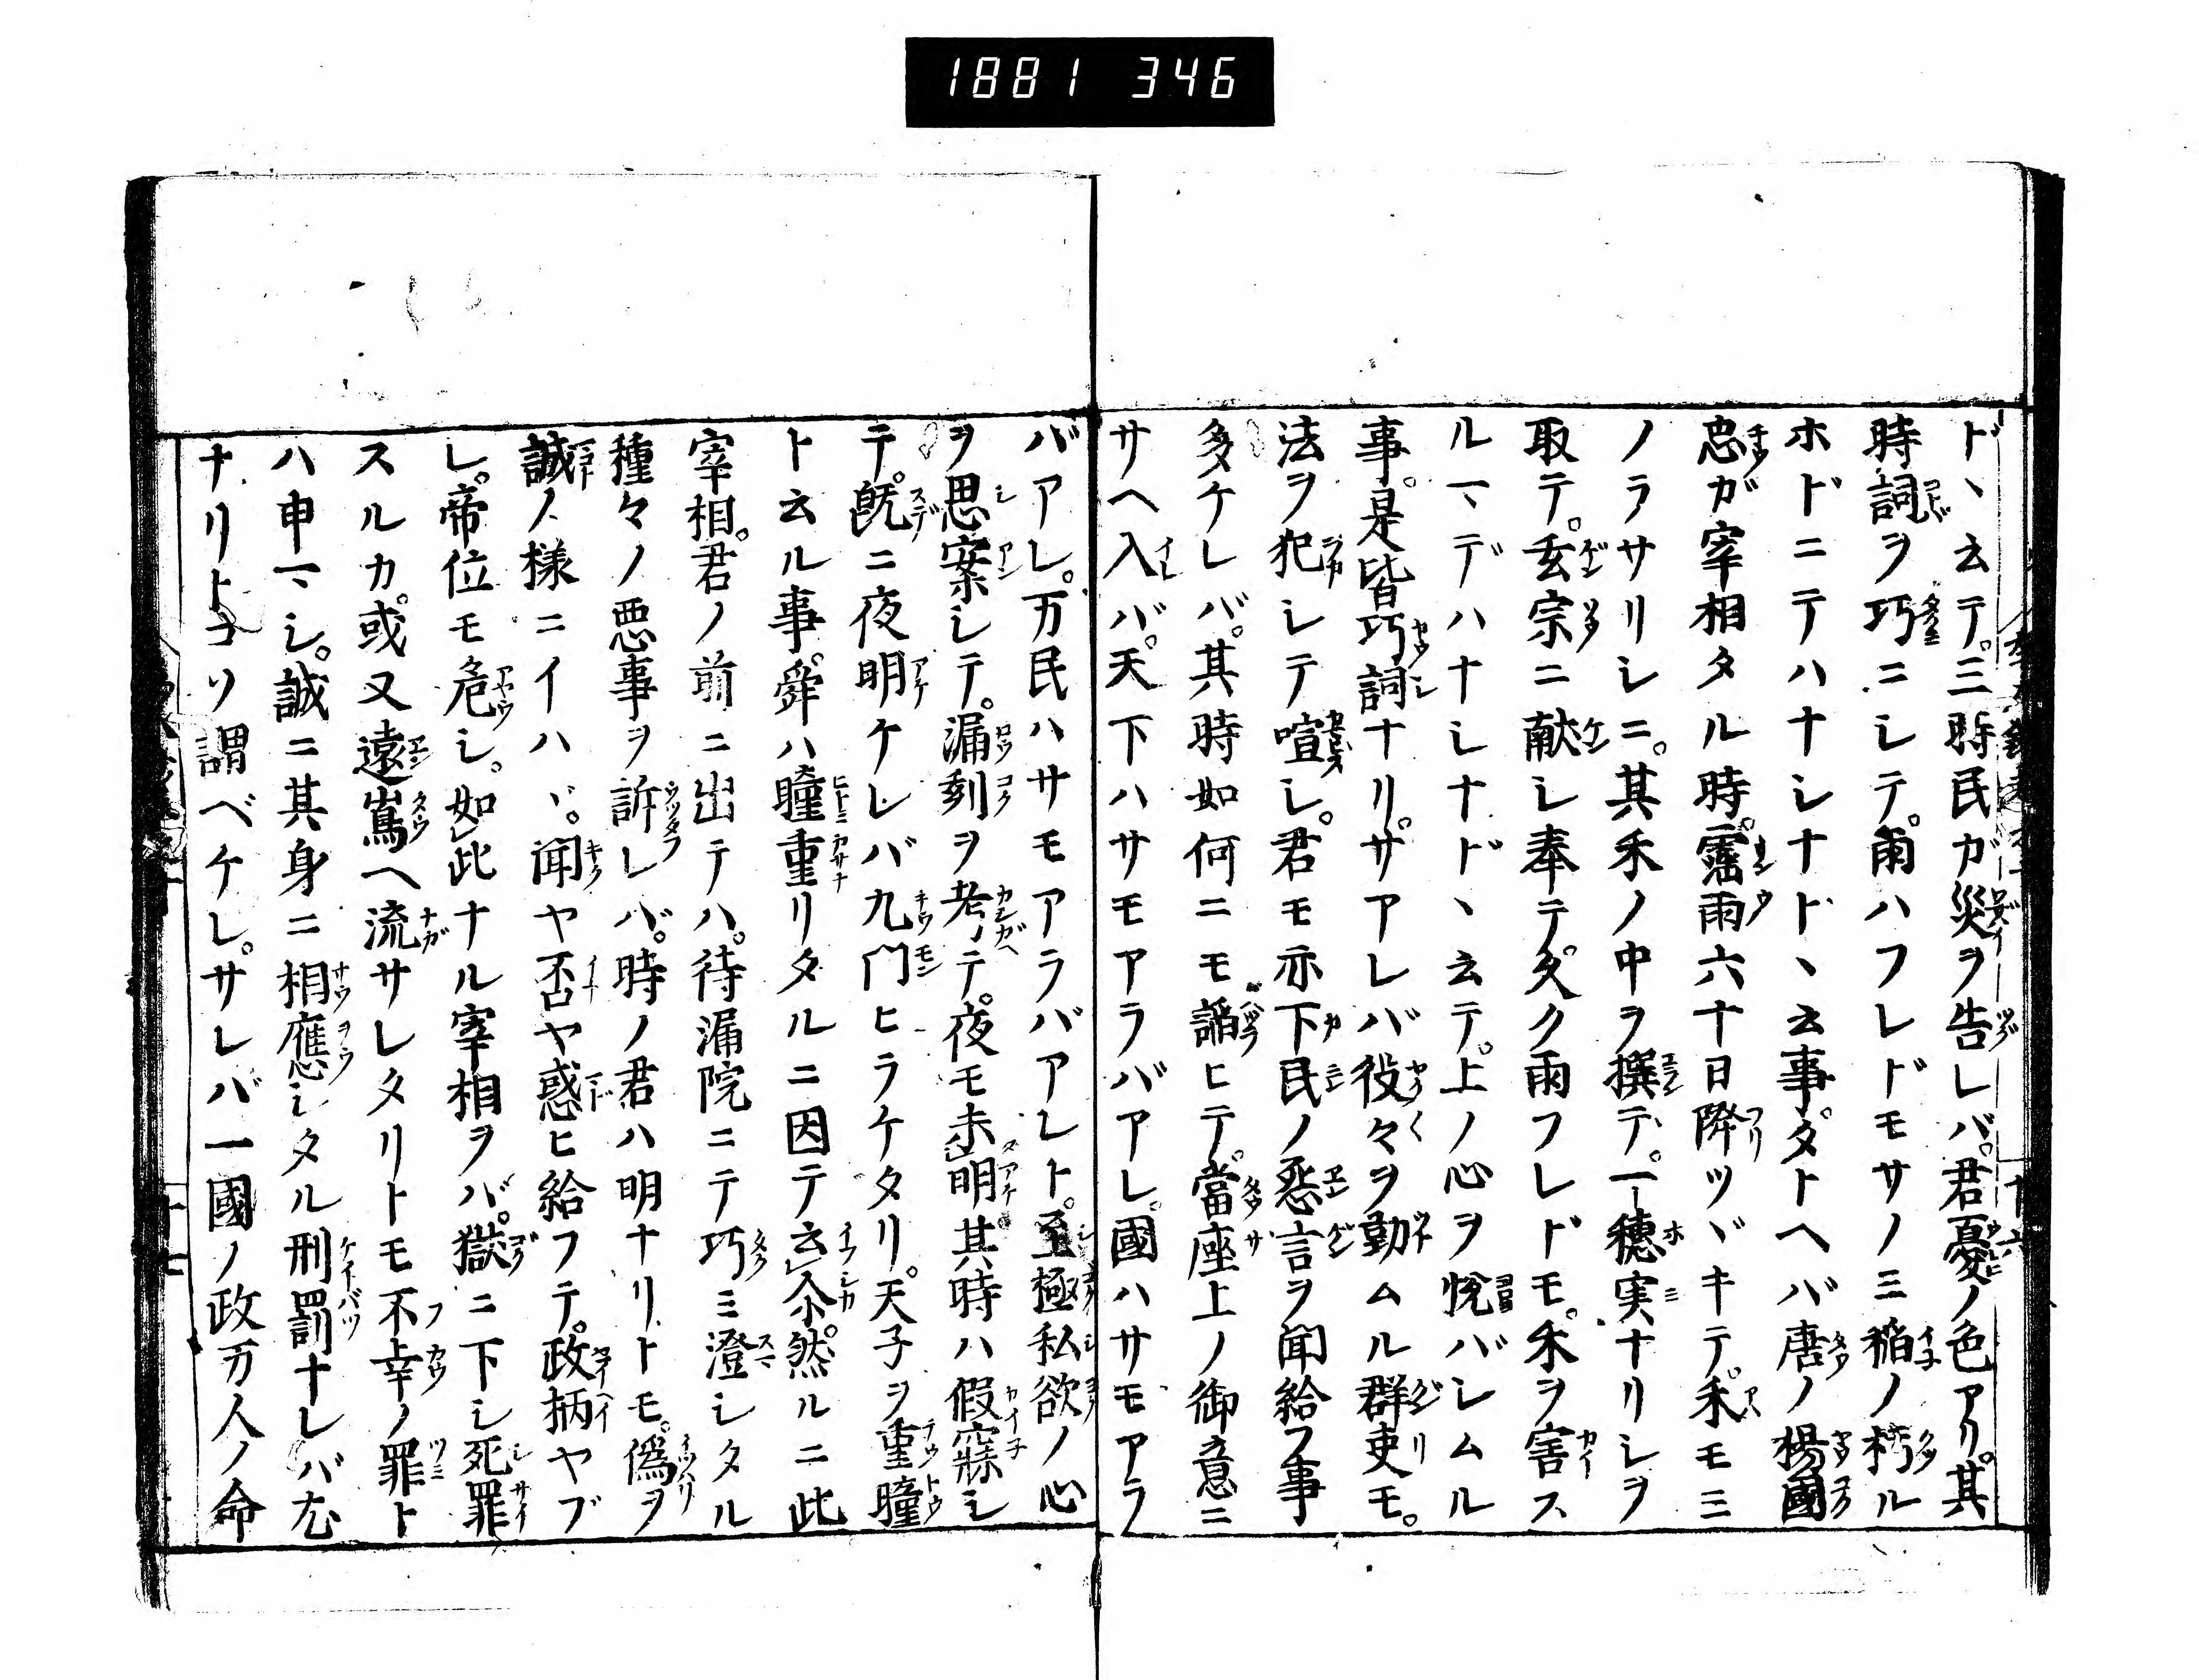 1881 346
ド、云テ。三時民ガ災ヲ告レバ。君憂ノ色アリ。其
時詞ヲ巧ニシテ。雨ハフレドモサノミ稲ノ朽ル
ホドニテハナシナド、云事。タトヘバ唐ノ楊國
忠ガ宰相タル時。霪雨六十日降ツヾキテ。禾モミ
ノラサリシニ。其禾ノ中ヲ撰テ。一穂実ナリシヲ
取テ。玄宗ニ献シ奉テ。久ク雨フレドモ。禾ヲ害ス
ルヿデハナシナド、云テ。上ノ心ヲ悦バシムル
事。是皆巧詞ナリ。サアレバ役々ヲ勤ムル群吏モ。
法ヲ犯シテ喧シ。君モ亦下民ノ怨言ヲ聞給フ事
多ケレバ。其時如何ニモ諂ヒテ。當座上ノ御意ニ
サヘ入バ。天下ハサモアラバアレ。國ハサモアラ
バアレ。万民ハサモアラバアレト。至極私欲ノ心
ヲ思案シテ。漏刻ヲ考テ。夜モ未明其時ハ假寐シ
テ。既ニ夜明ケレバ九門ヒラケタリ。天子ヲ重瞳
ト云ル事。舜ハ瞳重リタルニ因テ云尒。然ルニ此
宰相。君ノ前ニ出テハ。待漏院ニテ巧ミ澄シタル
種々ノ悪事ヲ訴レバ。時ノ君ハ明ナリトモ。偽ヲ
誠ノ様ニイハヾ。聞ヤ否ヤ惑ヒ給フテ。政柄ヤブ
レ。帝位モ危シ。如此ナル宰相ヲバ。獄ニ下シ死罪
スルカ。或又遠嶌ヘ流サレタリトモ不幸ノ罪ト
ハ申ヿシ。誠ニ其身ニ相應シタル刑罰ナレバ尤
ナリトコソ謂ベケレ。サレバ一國ノ政万人ノ命
十六
十七